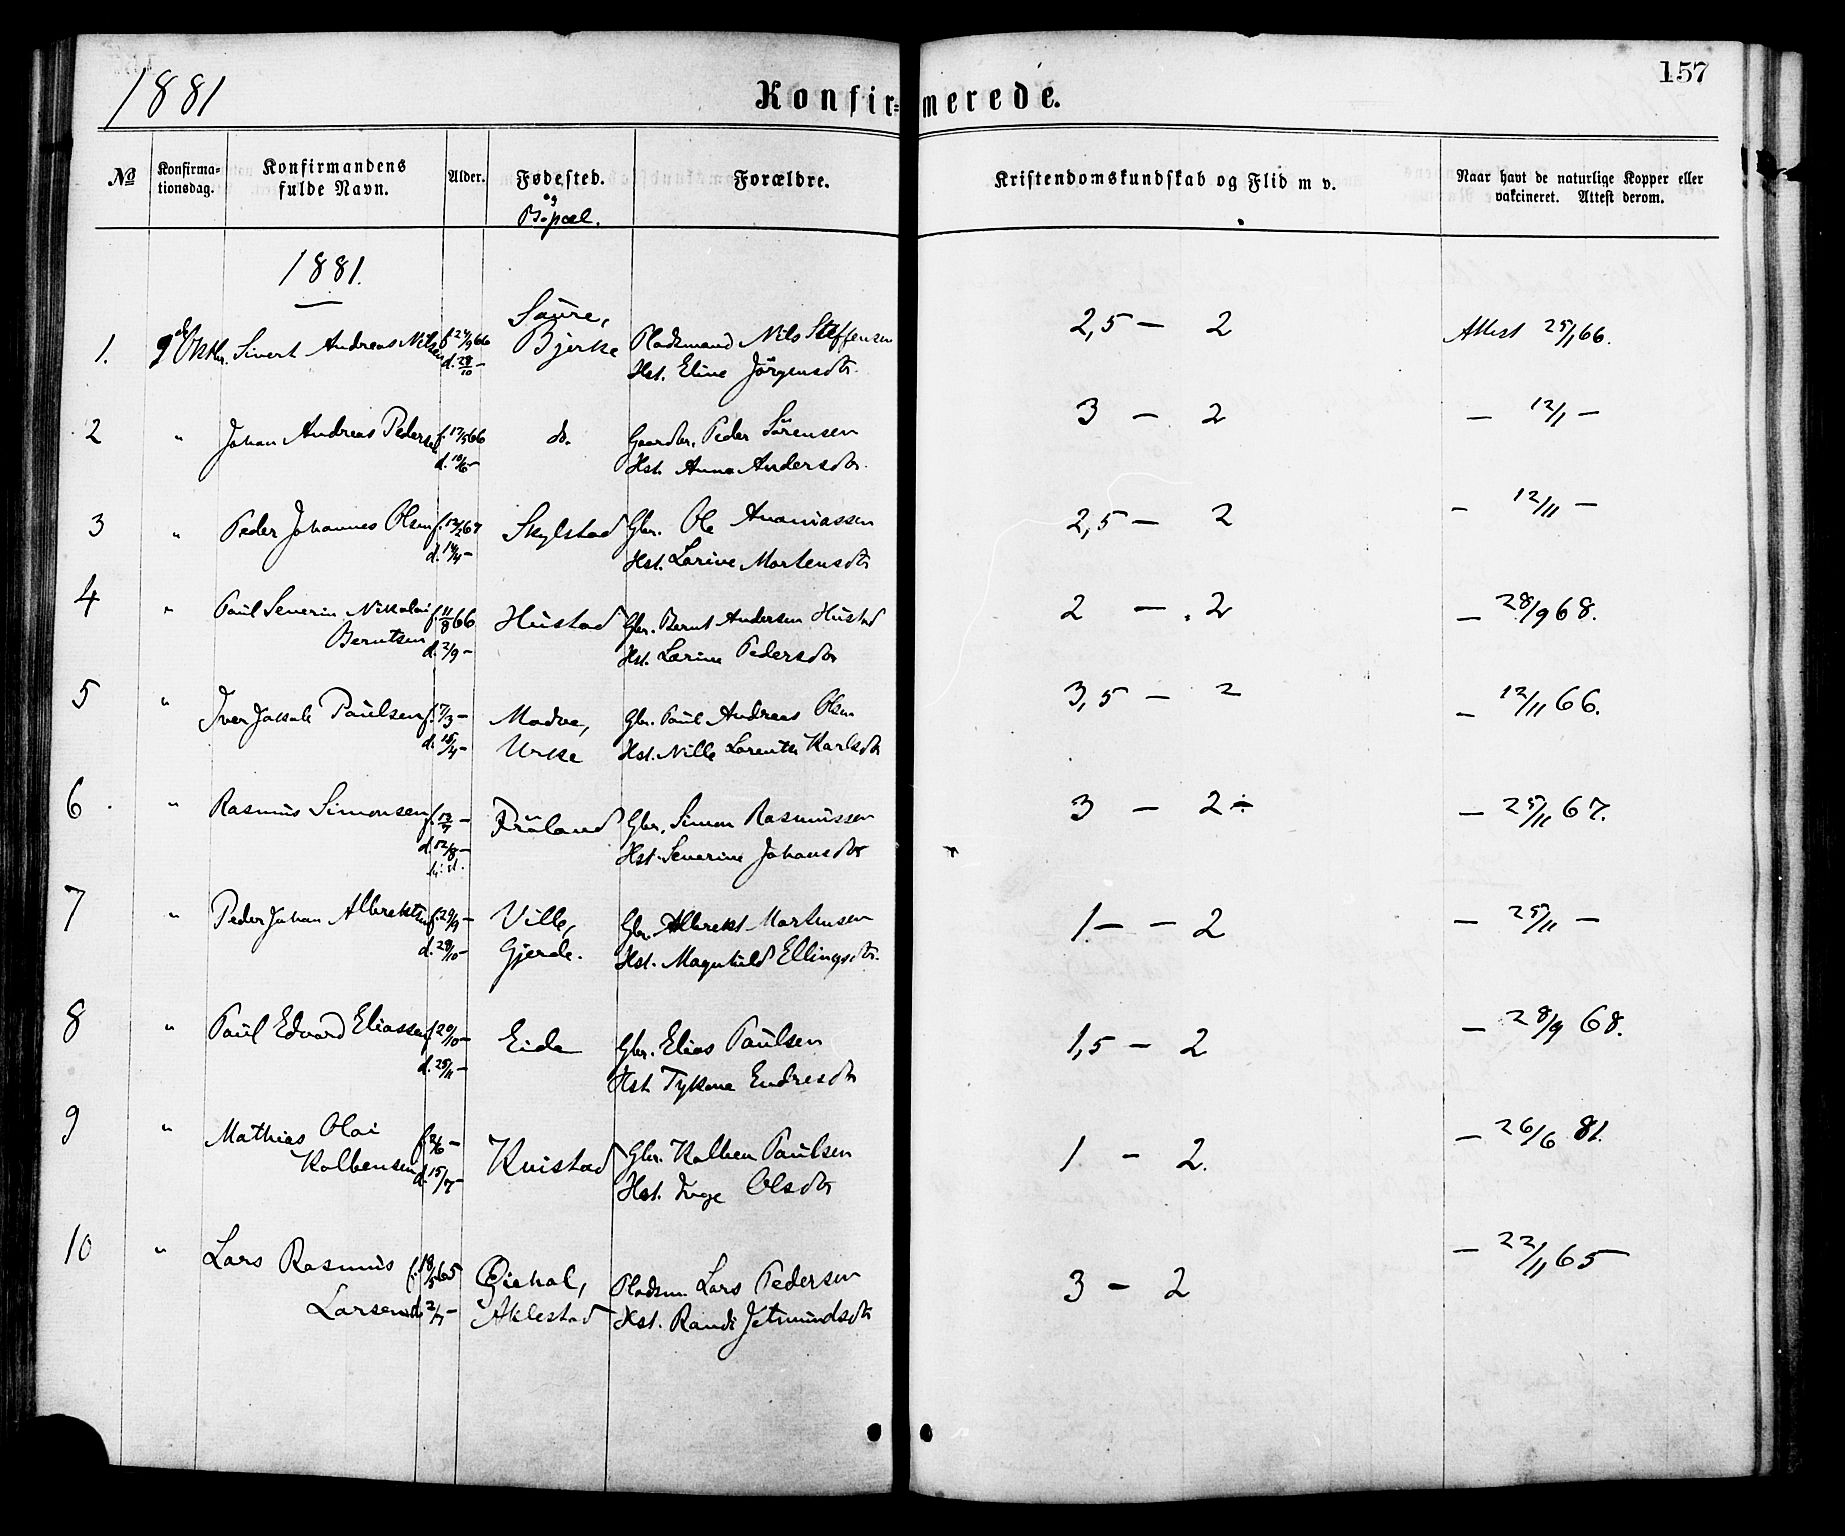 1881
157
Konfirmerede.
№ Konfirmationsdag. Konfirmandens fulde Navn. Alder. Fødested. og Bopæl. Forældre. Kristendomskundskab og Flid m v. Naar havt de naturlige Kopper eller vakcineret. Attest derom.
1881.
1. 9de Oktbr. Sivert Andreas Nilsen f. 24/9 66 Saure, Pladsmand Nils Steffensen 2,5 — 2 Attest 25/1 66.
d. 28/10 — Bjerke Hst. Eline Jörgensdtr.
2 " Johan Andreas Pedersen f. 17/5 66 do. Gaardbr. Peder Sörensen 3 — 2 — 12/1 —
d. 10/6 — Hst. Anna Andersdtr.
3 " Peder Johannes Olsen f. 12/2 67 Skylstad Gbr. Ole Ananiassen 2,5 — 2 — 12/11 —
d. 14/4 — Hst. Larine Mortensdtr
4 " Paul Severin Nikolai f. 11/8 66 Hustad Gbr. Bernt Andersen Hustad 2 — 2 — 28/9 68.
Berntsen d. 2/9 — Hst. Larine Pedersdtr
5 " Iver Jakob Paulsen f. 7/3 — Madva, Gbr. Paul Andreas Olsen 3,5 — 2 — 12/11 66.
d. 15/4 — Urke Hst. Nille Lorentse Karlsdtr
6 . " Rasmus Simonsen f. 12/7 — Fröland Gbr. Simon Rasmussen 3 — 2 ÷ — 25/11 67.
d. 12/8 — Hst. Severine Johansdtr
7 " Peder Johan Albrektsen f. 29/9 — Ville, Gbr. Albrekt Martensen 1 — — 2 — 25/11 —
d. 28/10 — Gjerde. Hst. Magnhild Ellingsdtr.
8 " Paul Edvard Eliassen f. 20/10 — Eide Gbr. Elias Paulsen 1,5 — 2 — 28/9 68.
d. 25/11 — Hst. Endresdtr
9 " Mathias Olai f. 2/6 — Kvistad Gbr. Kolben Paulsen 1 — 2. — 26/6 81.
Kolbensen d. 15/7 — Hst. Inge Olsdtr
10 " Lars Rasmus f. 18/5 65 Pladsm. Lars Pedersen 3 — 2 — 22/11 65
Larsen d. 2/7 — Aklestad Hst. Randi Jetmundsdtr